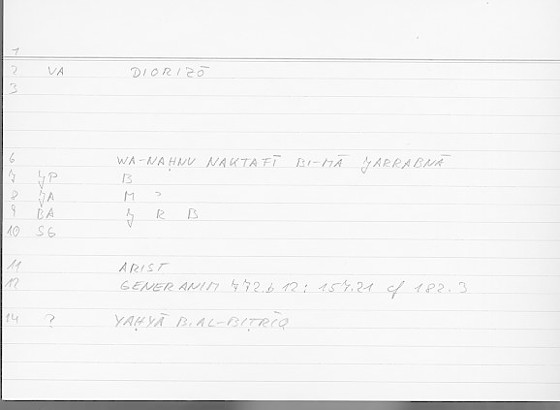 1
2 VA DIORIZŌ
3
6 WA-NAḤNU NAKTAFĪ BI-MĀ JARRABNĀ
7 JP B
8 JA M ?
9 BA J R B
10 SG
11 ARIST
12 GENER ANIM 772b12: 157.21 cf 182.3
14 ? YAḤYĀ B. AL-BIṬRĪQ